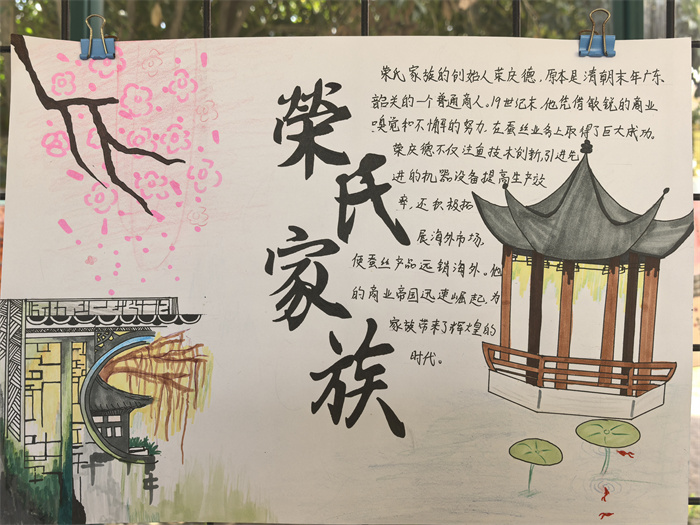 榮氏家族
荣氏家族的创始人荣庆德，原本是清朝末年广东
韶关的一个普通商人。19世纪末，他凭借敏锐的商业
嗅觉和不懈的努力，在蚕丝业务上取得了巨大成功。
荣庆德不仅注重技术创新，引进先
进的机器设备提高生产效
率，还积极拓
展海外市场，
使蚕丝产品远销海外。他
的商业帝国迅速崛起，为
家族带来了辉煌的
时代。